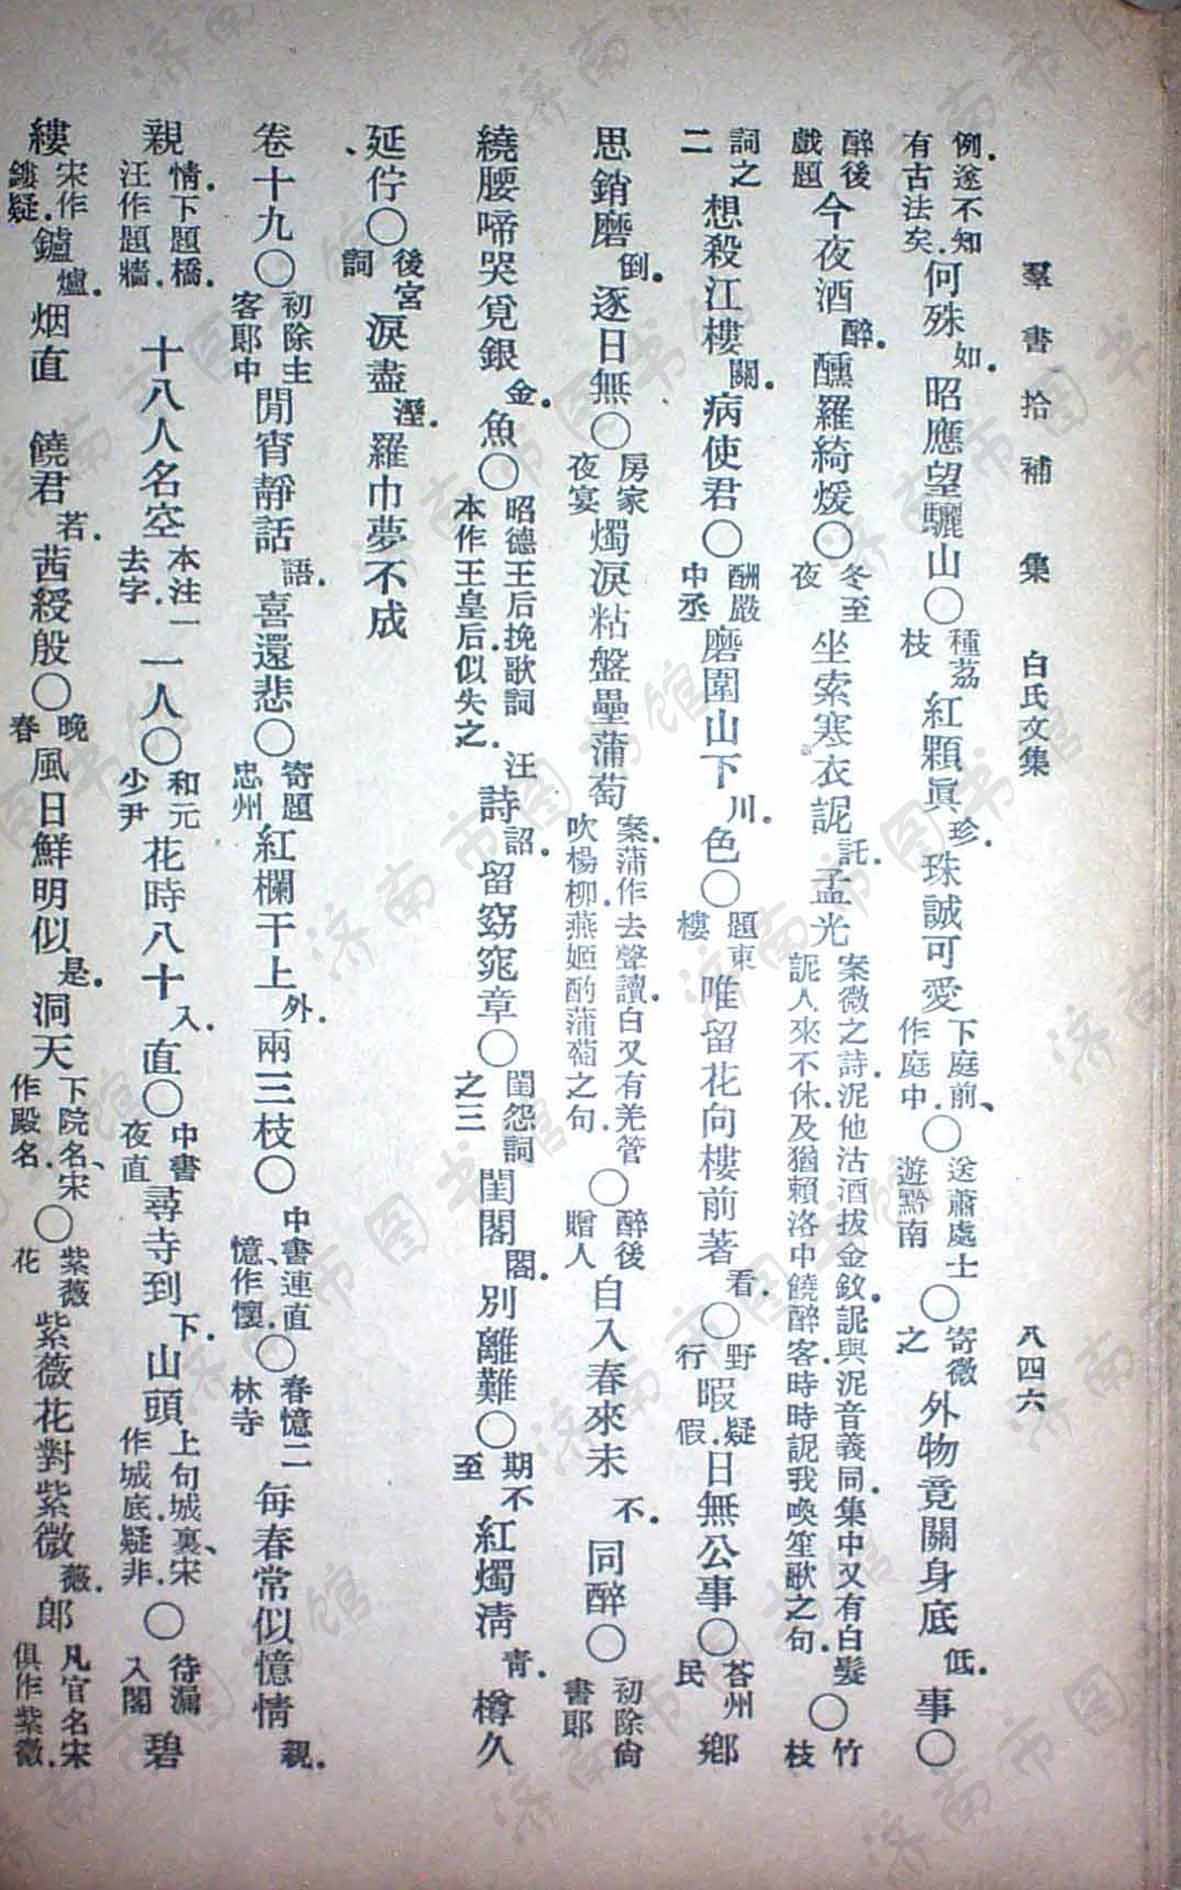 羣書拾補 集 白氏文集 八四六
例遂不知有古法矣何殊如昭應望驪山〇種荔枝紅顆眞珍珠誠可愛下庭前、作庭中〇送蕭處士遊黔南〇寄微之外物竟關身底低事〇
醉後戲題今夜酒醉醺羅綺煖〇冬至夜坐索寒衣詑託孟光案微之詩泥他沽酒拔金釵詑與泥音義同集中又有白髮詑人來不休及猶賴洛中饒醉客時時詑我喚笙歌之句〇竹枝
詞之二想殺江樓關病使君〇酬嚴中丞磨圍山下川色〇題東樓唯留花向樓前著看〇野行暇疑假日無公事〇荅州民鄉
思銷磨倒逐日無〇房家夜宴燭淚粘盤壘蒲萄案蒲作去聲讀白又有羌管吹楊柳燕姬酌蒲萄之句〇醉後贈人白入春來未不同醉〇初除尙書郞
繞腰啼哭覓銀金魚〇昭德王后挽歌詞本作王皇后似失之汪詩詔留窈窕章〇閨怨詞之三閨閤閣別離難〇期不至紅燭淸青樽久
延佇〇後宮詞淚盡溼羅巾夢不成
卷十九〇初除主客郞中閒宵靜話語喜還悲〇寄題忠州紅欄干上外兩三枝〇中書連直、憶作懷〇春憶二林寺每春常似憶情親
親情下題橋汪作題牆 十八人名空本注一去字一人〇和元少尹花時八十入直〇中書夜直尋寺到下山頭上句城裏、宋作城底疑非〇待漏入閣碧
縷宋作鏤疑鑪爐烟直 饒君若茜綬殷〇晚春風日鮮明似是洞天下院名、宋作殿名〇紫薇花紫薇花對紫微薇郞凡官名宋俱作紫薇